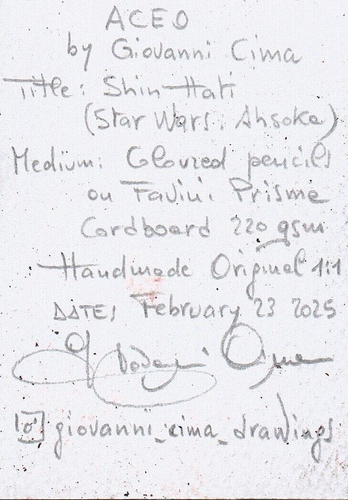 ACEO
by Giovanni Cima
Title: Shin Hati
(Star Wars: Ahsoka)
Medium: Coloured pencils
on Favini Prisme
Cardboard 220 gsm
Handmade Original 1:1
DATE: February 23 2025
Giovanni Cima
giovanni_cima_drawings